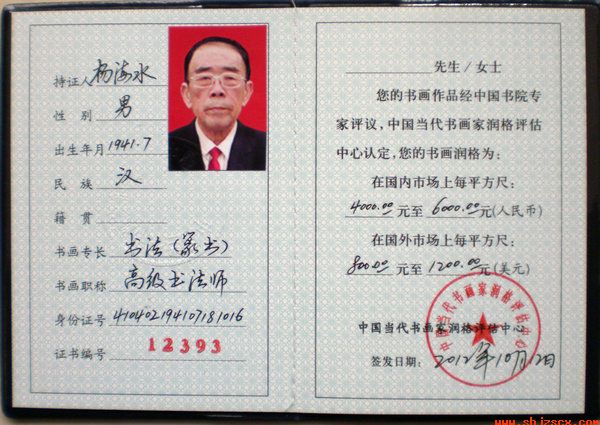 持证人 杨海水
性 别 男
出生年月 1941.7
民 族 汉
籍 贯
书画专长 书法(篆书)
书画职称 高级书法师
身份证号 410402194107181016
证书编号 12393
先生/女士
您的书画作品经中国书院专
家评议,中国当代书画家润格评估
中心认定,您的书画润格为:
在国内市场上每平方尺:
4000.00 元至 6000.00 元(人民币)
在国外市场上每平方尺:
800.00 元至 1200.00 元(美元)
中国当代书画家润格评估中心
中国当代书画家润格评估中心
签发日期: 2012年10月12日
www.shjzscx.com